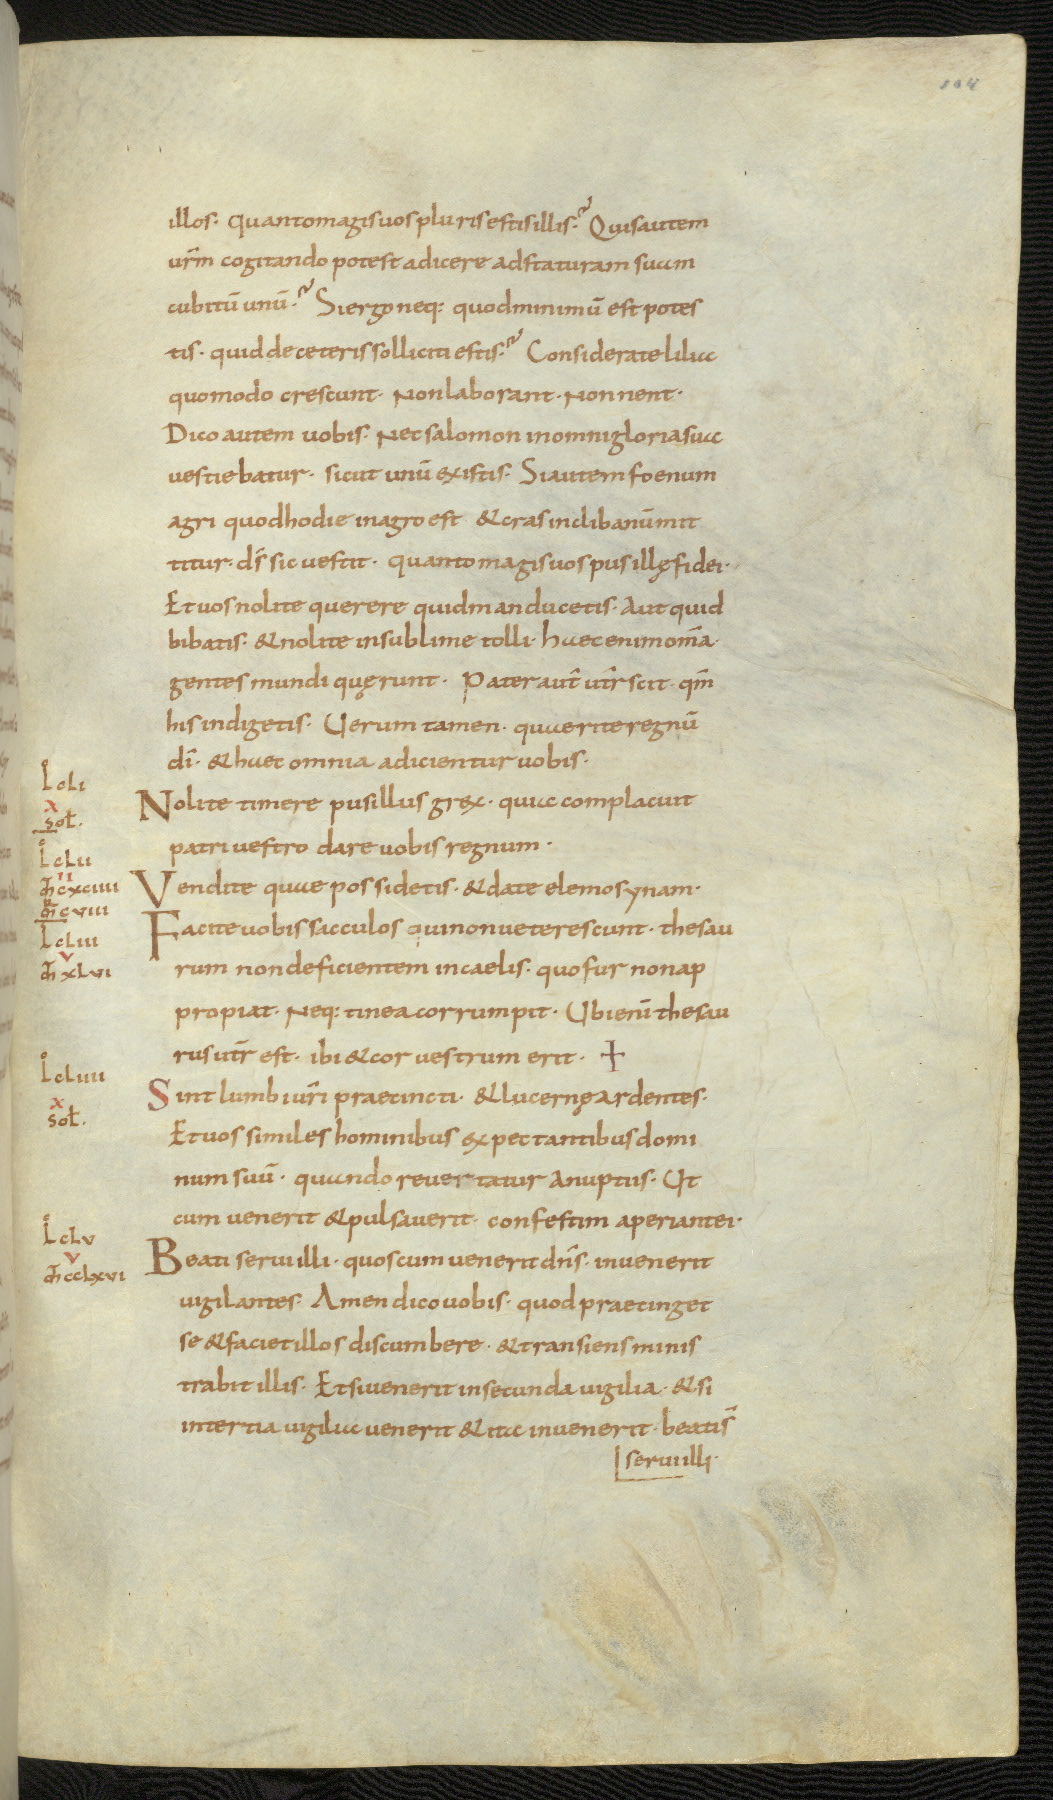 104
illos· quantomagisuosplurisestisillis·? Quisautem
ur̄m cogitando potest adicere adstaturam suam
cubitū unū·? Siergo neq: quodminimū est potes
tis· quid de ceteris solliciti estis·? Considerate lilia
quomodo crescunt· Nonlaborant· Non nent·
Dico autem uobis· Nec salomon inomni gloria sua
uestiebatur· sicut unū existis· Siautem foenum
agri quodhodie inagro est &cras inclibanūmit
titur· ds̄ sic uestit· quantomagis uos pusillę fidei·
Et uos nolite querere quidmanducetis· Aut quid
bibatis· &nolite insublime tolli· haec enim om̄a
gentes mundi quęrunt· Pater aut̄ ut̄r scit· qm̄
his indigetis· Uerum tamen· quaerite regnū
dī· &haec omnia adicientur uobis·
L̊ cli
Nolite timere pusillus grex· quia complacuit
x
sol̄·
patri uestro dare uobis regnum·
L̊ clii
Vendite quae possidetis· &date elemosynam·
ii
m̄ cxciiii
m̄ cviii
Facite uobis sacculos quinonueterescunt· thesau
L cliii
v
m̄ xlvi
rum nondeficientem incaelis· quofur nonap
propiat· Neq: tinea corrumpit· Ubi enī thesau
rus ut̄r est· ibi &cor uestrum erit· +
L̊ cliiii
Sint lumbi ur̄i praecincti· &lucernę Ardentes·
x
sol̄·
Etuos similes hominibus expectantibus domi
num suū· quando reuertatur Anuptiis· Ut
cum uenerit &pulsauerit· confestim aperiantei·
L̊ clv
Beati serui illi· quoscumuenerit dn̄s· inuenerit
v
m̄ cclxvi
uigilantes· Amen dicouobis· quod praecinget
se &facietillos discumbere· &transiens minis
trabit illis· Etsiuenerit insecunda uigilia· &si
intertia uigilia uenerit &ita inuenerit· beatis̄
seruiilli·